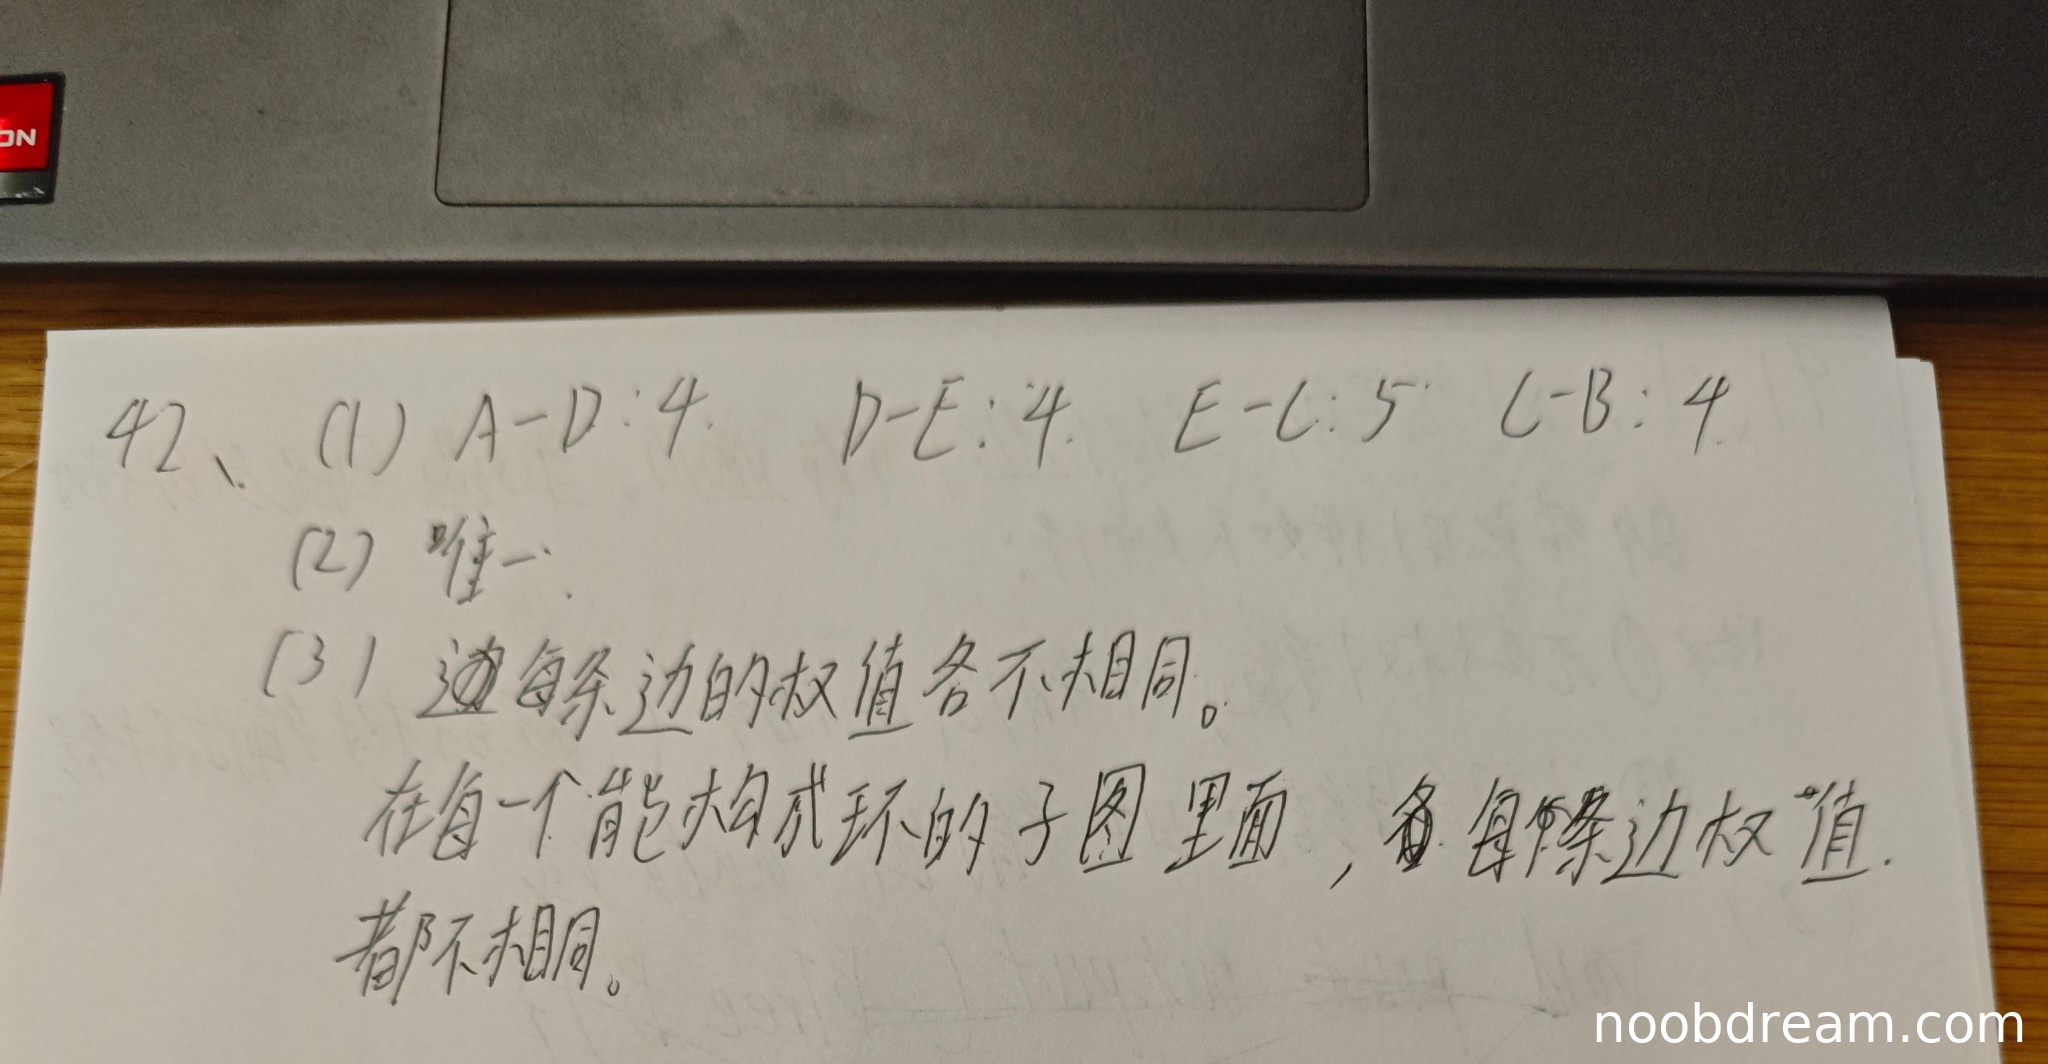 ON
42、(1) A-D:4. D-E:4. E-C:5 C-B:4.
(2) 唯一.
(3) 每条边的权值各不相同。
在每一个能构成环的子图里面,每条边权值.
都不相同。
noobdream.com